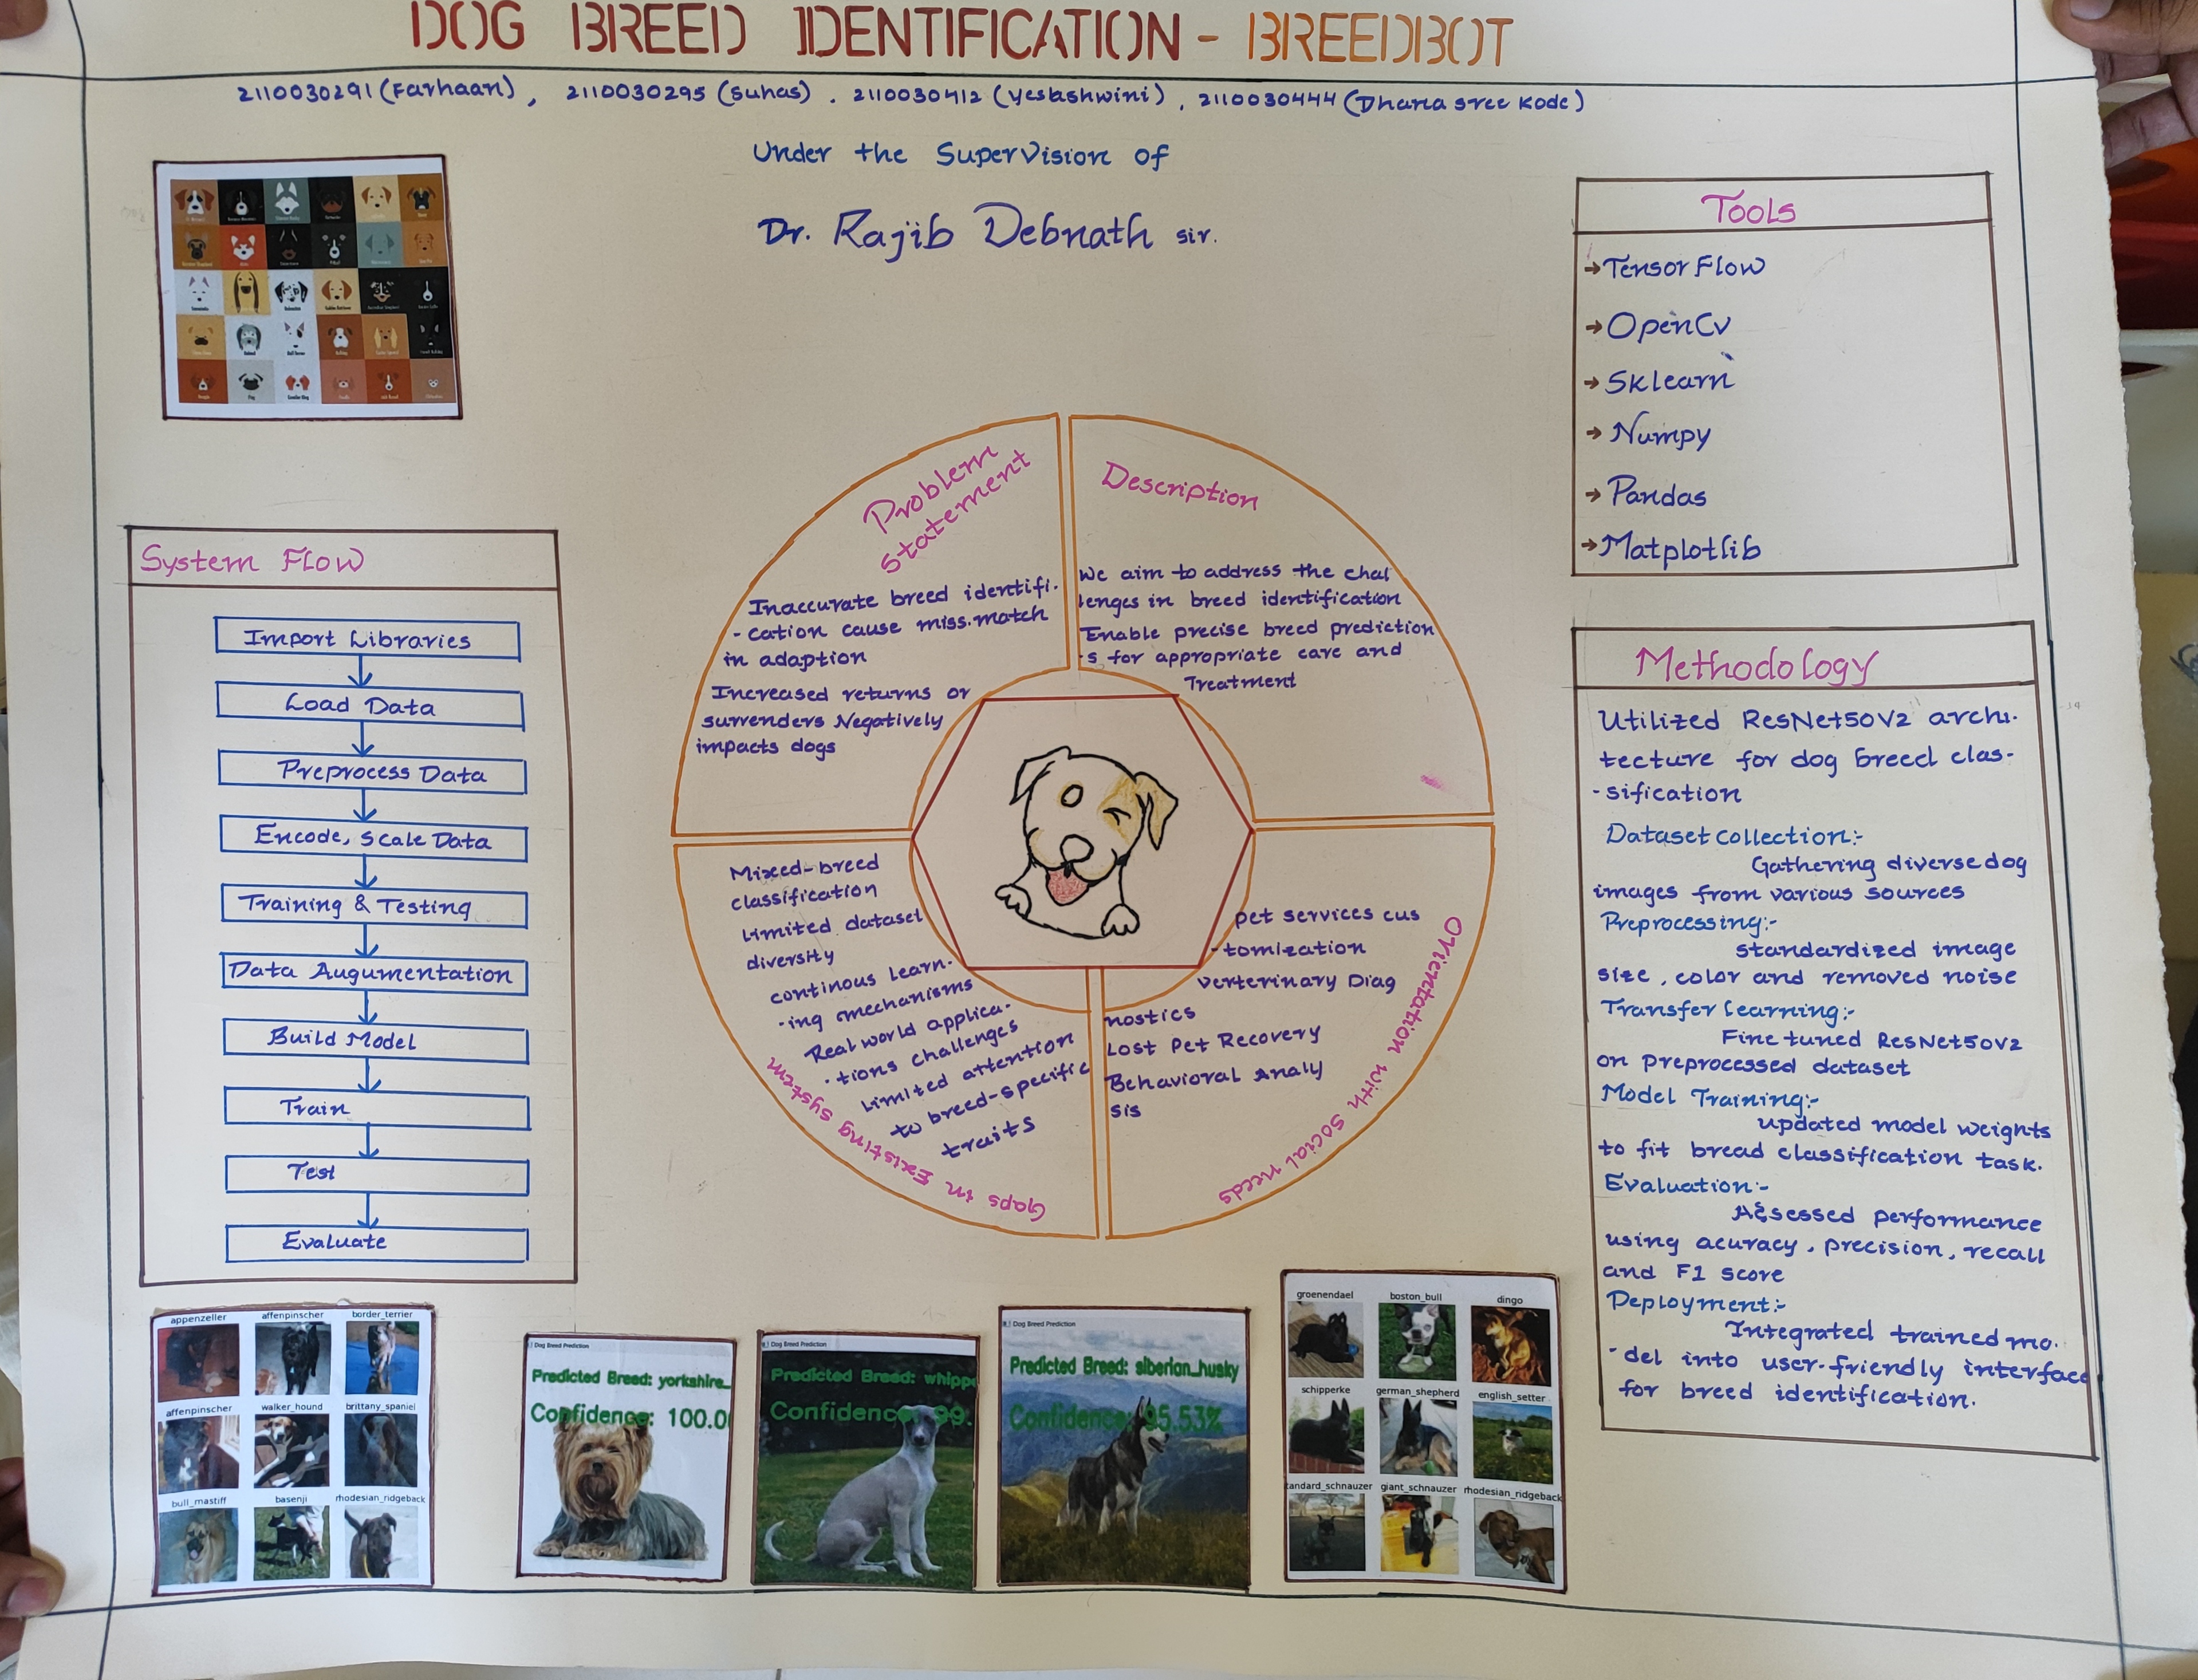 DOG BREED IDENTIFICATION - BREEDBOT
2110030291 (Farhaan), 2110030295 (Suhas). 2110030412 (Yeslashwini), 2110030444 (Dhana sree Kode)
Under the SuperVision of
Dr. Rajib Debnath sir.
Tools
→ TensorFlow
→ OpenCv
→ Sklearn
→ Numpy
→ Pandas
→ Matplotlib
System Flow
Import Libraries
Load Data
Preprocess Data
Encode, Scale Data
Training & Testing
Data Augumentation
Build Model
Train
Test
Evaluate
Problem
Statement
Inaccurate breed identifi-
-cation cause miss.match
in adaption
Increased returns or
surrenders Negatively
impacts dogs
Description
We aim to address the chal
lenges in breed identification
Enable precise breed prediction
-s for appropriate care and
Treatment
Mixed-breed
classification
Limited dataset
diversity
continous learn-
-ing mechanisms
Real world applica-
-tions challenges
Limited attention
to breed-specific
traits
Gaps in Existing system
pet services cus
-tomization
verterinary Diag
nostics
Lost Pet Recovery
Behavioral Analy
sis
Orientation with social needs
Methodology
Utilized ResNet50V2 archi-
tecture for dog breed clas-
-sification
Dataset collection:-
Gathering diverse dog
images from various sources
Preprocessing:-
standardized image
size, color and removed noise
Transfer learning:-
Fine tuned ResNet50V2
on preprocessed dataset
Model Training:-
updated model weights
to fit bread classification task.
Evaluation:-
Assessed performance
using acuracy, precision, recall
and F1 score
Deployment:-
Integrated trained mo-
-del into user-friendly interface
for breed identification.
appenzeller affenpinscher border_terrier
affenpinscher walker_hound brittany_spaniel
bull_mastiff basenji rhodesian_ridgeback
Dog Breed Prediction
Predicted Breed: yorkshire_
Confidence: 100.0
Dog Breed Prediction
Predicted Breed: whippe
Confidence: 99.
Dog Breed Prediction
Predicted Breed: siberian_husky
Confidence: 95.53%
groenendael boston_bull dingo
schipperke german_shepherd english_setter
tandard_schnauzer giant_schnauzer rhodesian_ridgeback